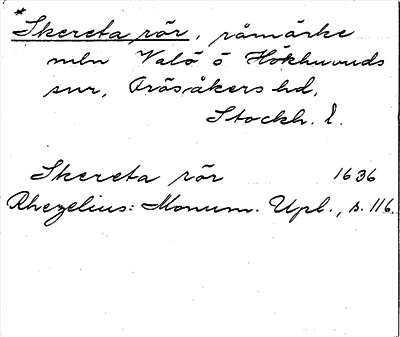 * Skereta rör, råmärke
mln Valö o Hökhuvuds
snr, Frösåkers hd,
Stockh. l.
Skereta rör 1636
Rhezelius: Monum. Upl., s. 116.